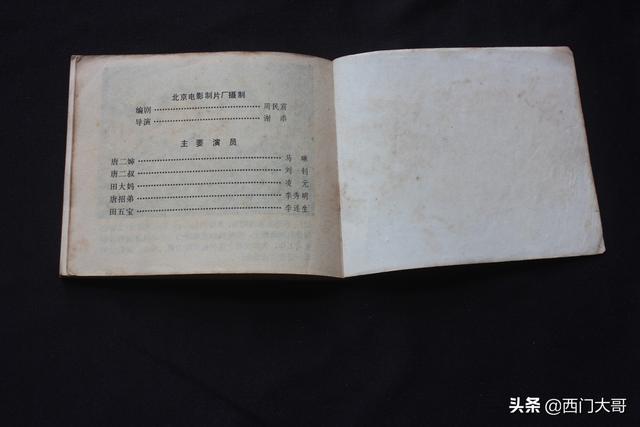 北京电影制片厂摄制
编剧……………………周民震
导演……………………谢添
主要演员
唐二婶……………………马琳
唐二叔……………………刘钊
田大妈……………………凌元
唐招弟……………………李秀明
田五宝……………………李连生
头条 @西门大哥